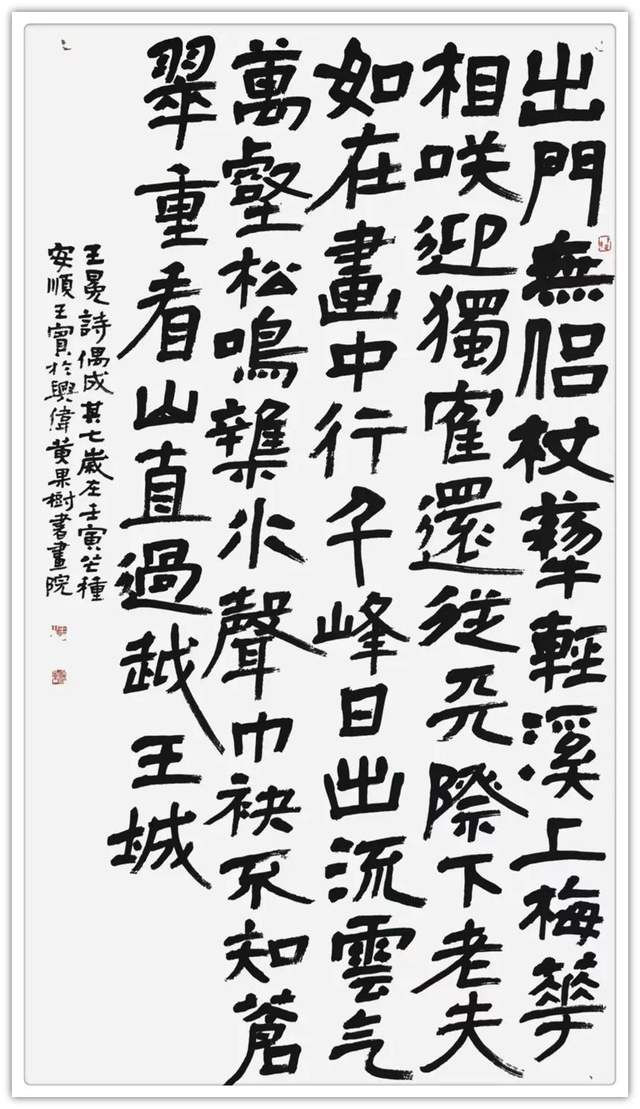 出門無侶杖藜輕溪上梅華
相咲迎獨寉還從天際下老夫
如在畫中行千峰日出流雲气
萬壑松鳴襍水聲巾袂不知蒼
翠重看山直過越王城
王冕詩偶成其七歲在壬寅芒種
安順王於興偉黃果樹書畫院